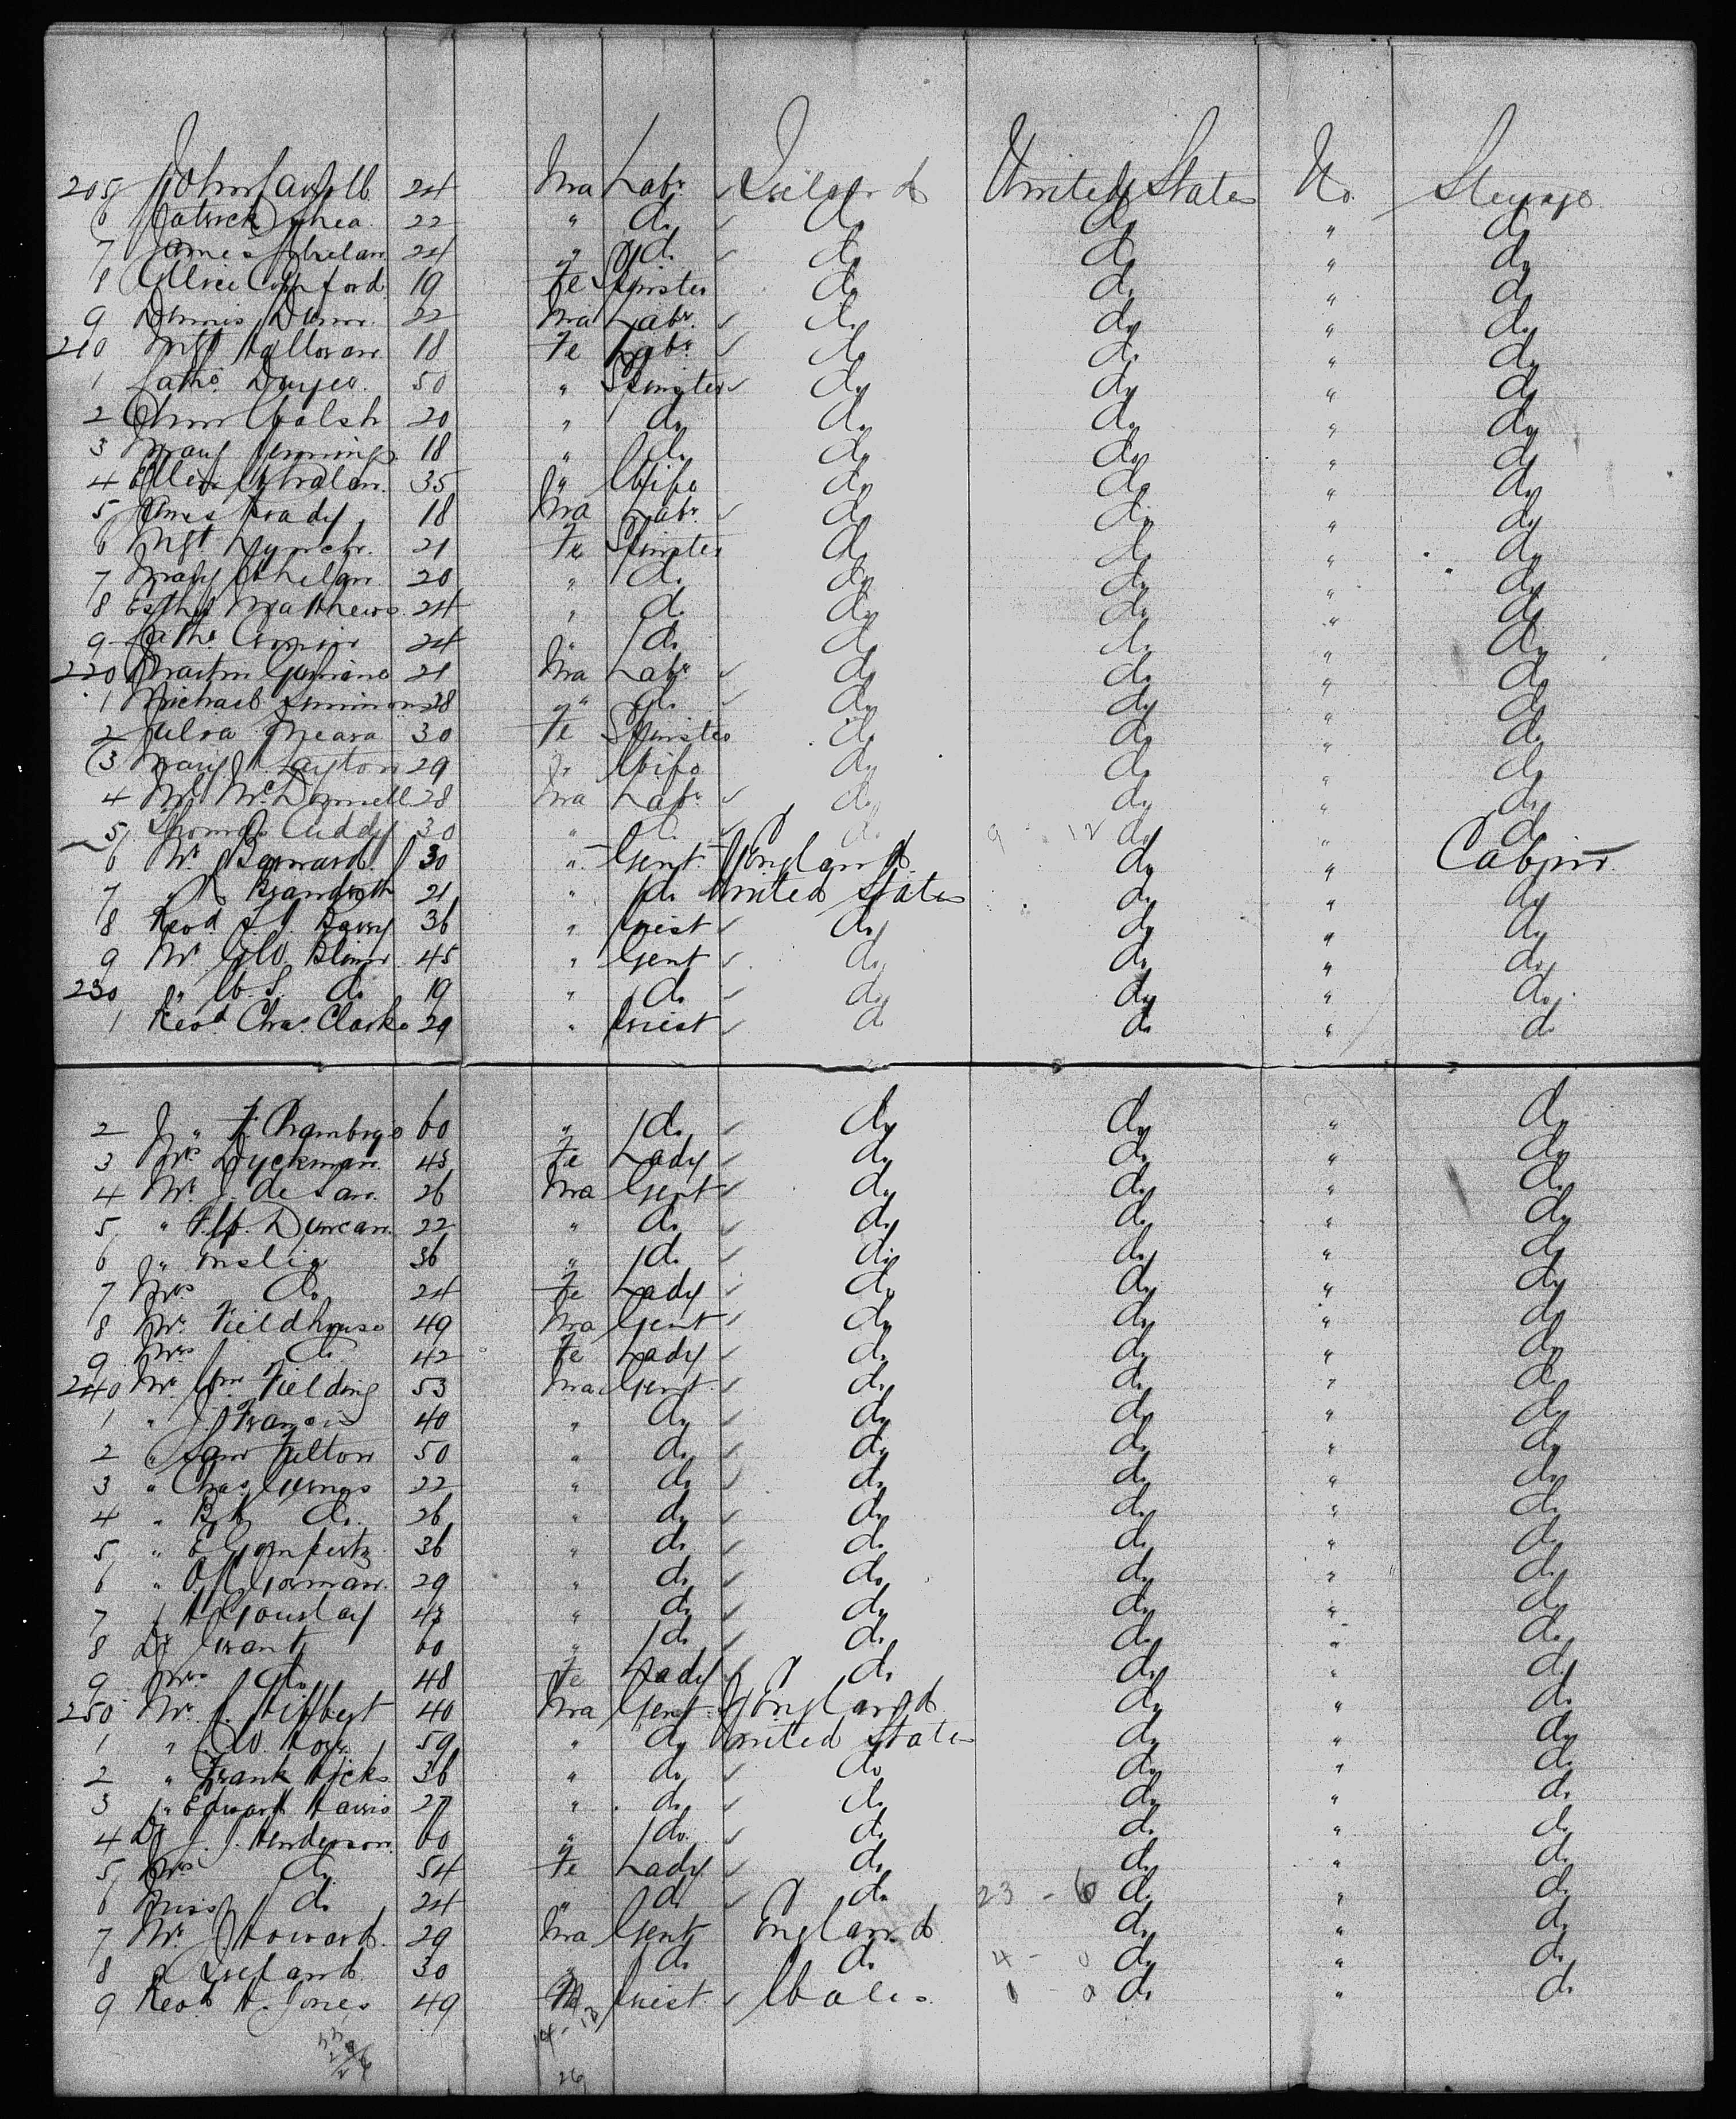 205 John Carroll 24 Ma Labr Ireland United States No. Steerage
6 Patrick Shea 22 " do do do " do
7 James Phelan 24 " do do do " do
8 Allice Comford 19 Fe Spinster do do " do
9 Dennis Dunn 22 Ma Labr do do " do
210 Mgt Halloran 18 Fe Labr do do " do
1 Cathe Dwyer 50 " Spinster do do " do
2 Ann Walsh 20 " do do do " do
3 Mary Jennings 18 " do do do " do
4 Ellen Whalan 35 " Wife do do " do
5 James Brady 18 Ma Labr do do " do
6 Mgt Lynch 21 Fe Spinster do do " do
7 Mary Whelan 20 " do do do " do
8 Esther Matthews 24 " do do do " do
9 Cathe Cronin 24 " do do do " do
220 Martin 21 Ma Labr do do " do
1 Michael 28 " do do do " do
2 Julia Meara 30 Fe Spinster do do " do
3 Mary A Layton 29 " Wife do do " do
4 Ml McDonnell 28 Ma Labr do do " do
5 Thomas Cuddy 30 " do do 9 - 12 do " do
6 Mr Barnard 30 " Gent England do " Cabin
7 " Brandreth 21 " do United States do " do
8 Revd Barry 36 " Priest do do " do
9 Mr G.W. 45 " Gent do do " do
230 " W.S. do 19 " do do do " do
1 Revd Chas Clarke 29 " Priest do do " do
2 " F. Chambers 60 " do do do " do
3 Mrs Dyckman 43 Fe Lady do do " do
4 Mr J. de Lan 26 Ma Gent do do " do
5 " Duncan 22 " do do do " do
6 " Emslie 36 " do do do " do
7 Mrs do 24 Fe Lady do do " do
8 Mr. Fieldhouse 49 Ma Gent do do " do
9 Mrs do 42 Fe Lady do do " do
240 Mr Wm Fielding 53 Ma Gent do do " do
1 " J. Francis 40 " do do do " do
2 " Sam Fulton 50 " do do do " do
3 " Chas 22 " do do do " do
4 " do 26 " do do do " do
5 " E Gompertz 36 " do do do " do
6 " Gorman 29 " do do do " do
7 " Gourlay 43 " do do do " do
8 Dr Grant 60 " do do do " do
9 Mrs do 48 Fe Lady do do " do
250 Mr. J. Hibbert 40 Ma Gent England do " do
1 " W. 59 " do United States do " do
2 " Frank Hicks 36 " do do do " do
3 " Edward Harris 27 " do do do " do
4 Dr J. J. Henderson 60 " do do do " do
5 Mrs do 54 Fe Lady do do " do
6 Miss do 24 " do do 23 - 6 do " do
7 Mr. J Howard 29 Ma Gent England do " do
8 " Ireland 30 " do do 4 - 0 do " do
9 Revd H. Jones 49 M Priest Wales 1 - 0 do " do
14 - 12
26